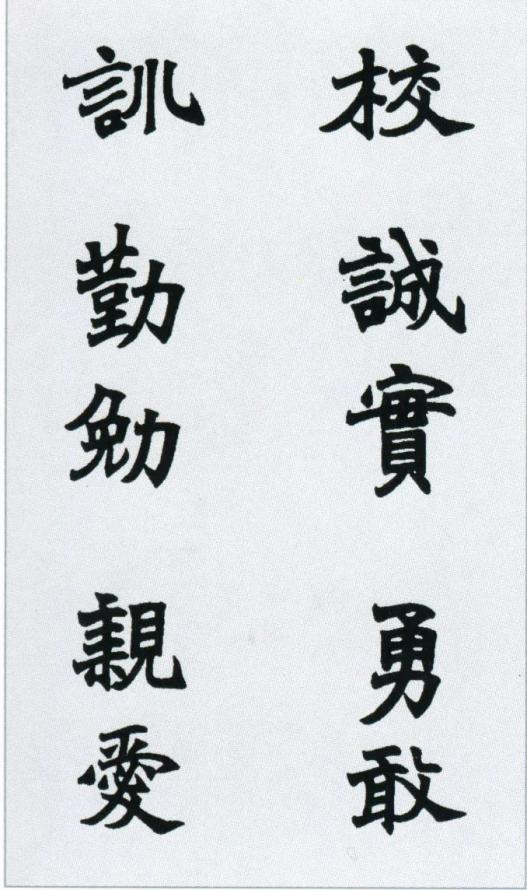 校 誠實 勇敢
訓 勤勉 親愛